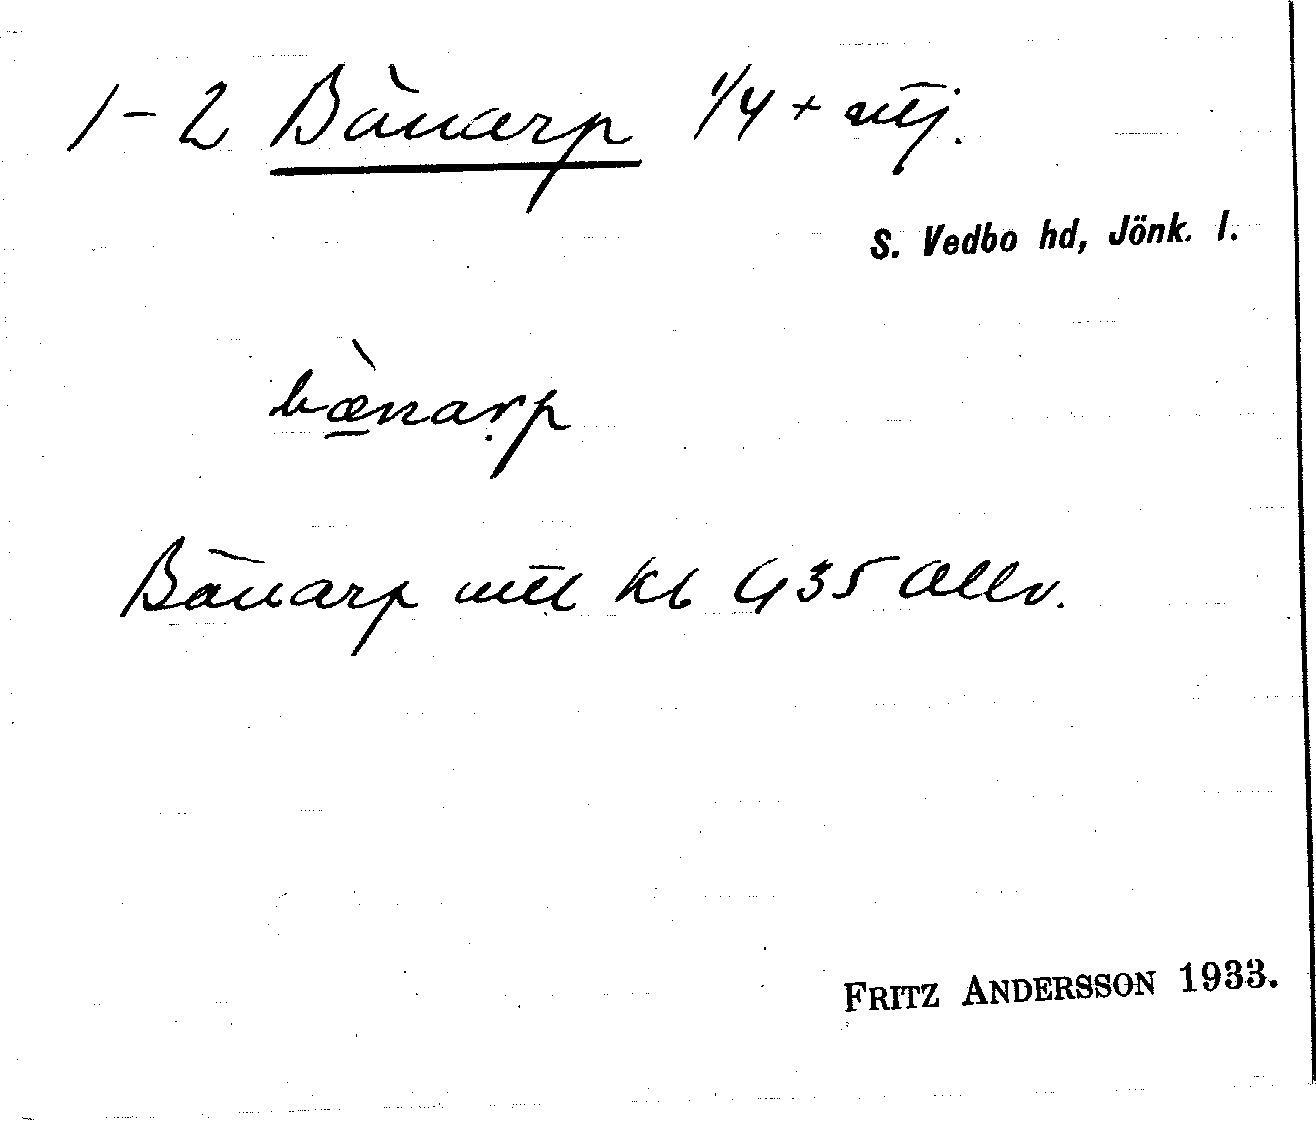 1-2 Bänarp 1/4 + utj.
S. Vedbo hd, Jönk. l.
bænarp
Bänarp utl kb G35 Allv.
FRITZ ANDERSSON 1933.